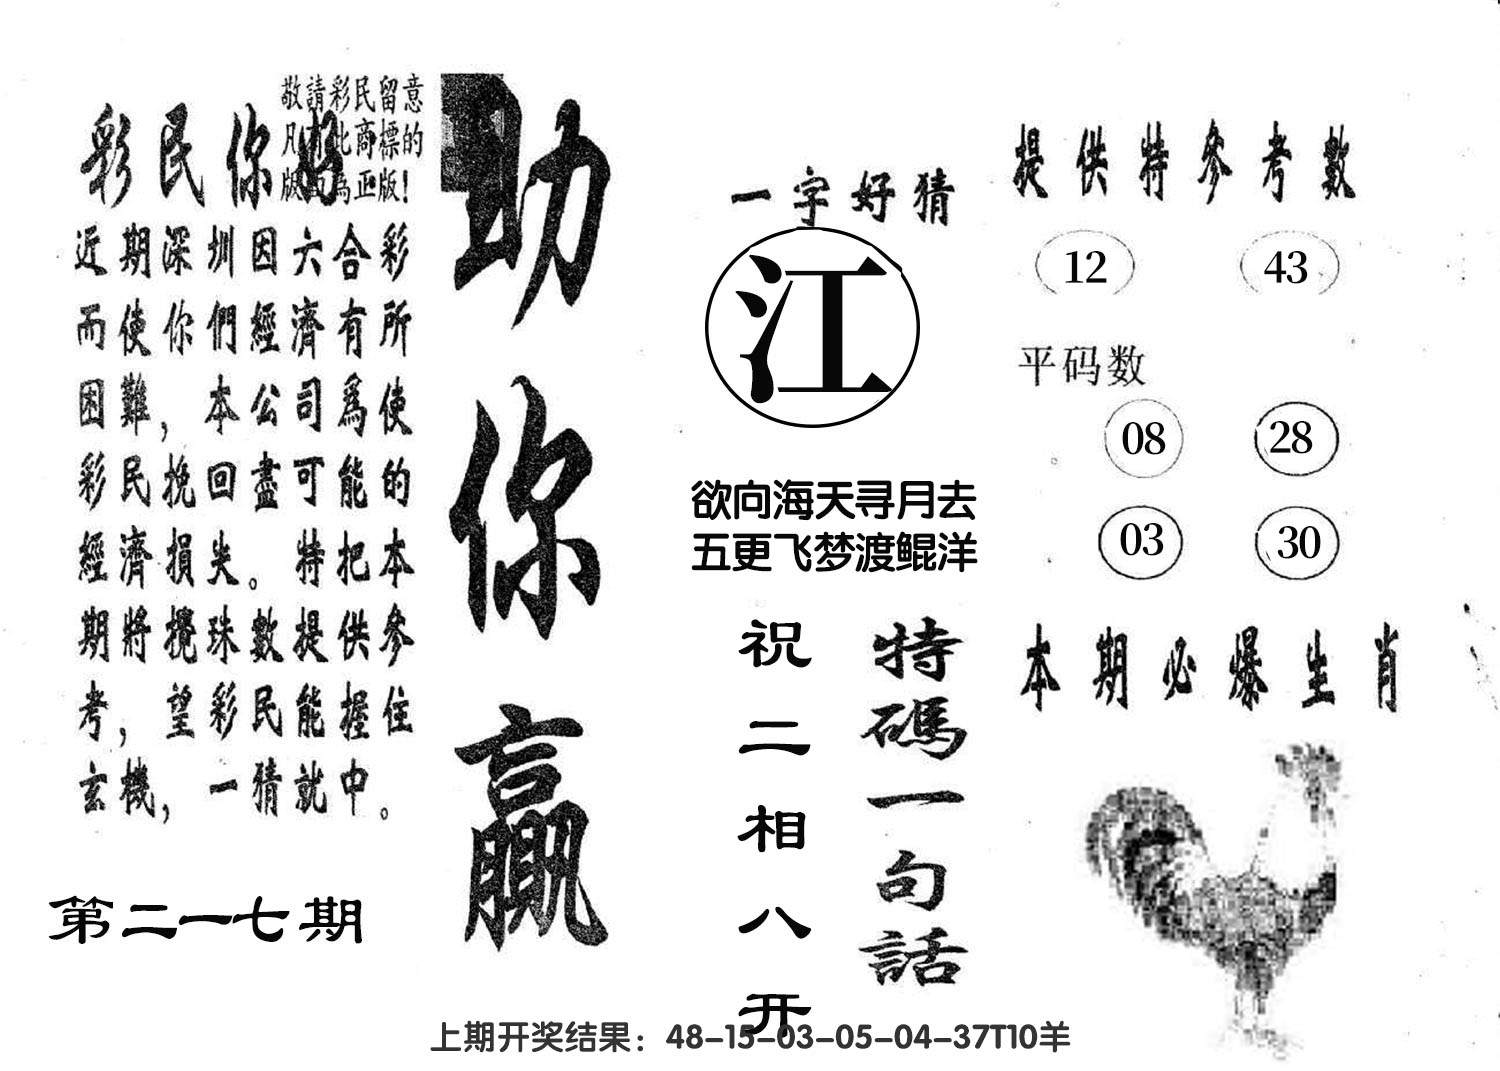 敬請彩民留意
凡有此商標的
版面為正版!
彩民你好
近期深圳因六合彩
而使你們經濟有所
困難，本公司爲使
彩民挽回盡可能的
經濟損失。特把本
期將攪珠數提供參
考，望彩民能握住
玄機，一猜就中。
第二一七期
助你贏
一字好猜
江
欲向海天寻月去
五更飞梦渡鲲洋
特碼一句話
祝二相八开
提供特參考數
12 43
平码数
08 28
03 30
本期必爆生肖
上期开奖结果：48-15-03-05-04-37T10羊